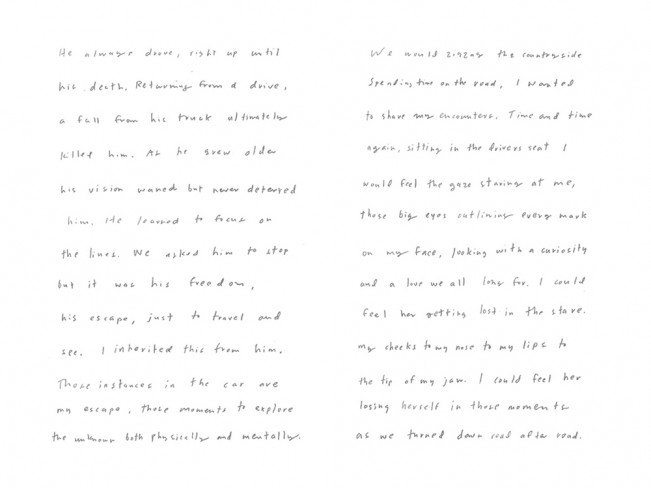 He always drove, right up until
his death. Returning from a drive,
a fall from his truck ultimately
killed him. As he grew older
his vision waned but never deterred
him. He learned to focus on
the lines. We asked him to stop
but it was his freedom,
his escape, just to travel and
see. I inherited this from him.
Those instances in the car are
my escape, those moments to explore
the unknown both physically and mentally.
We would zigzag the countryside
Spending time on the road, I wanted
to share my encounters. Time and time
again, sitting in the drivers seat I
would feel the gaze staring at me,
those big eyes outlining every mark
on my face, looking with a curiosity
and a love we all long for. I could
feel her getting lost in the stare.
my cheeks to my nose to my lips to
the tip of my jaw. I could feel her
losing herself in those moments
as we turned down road after road.